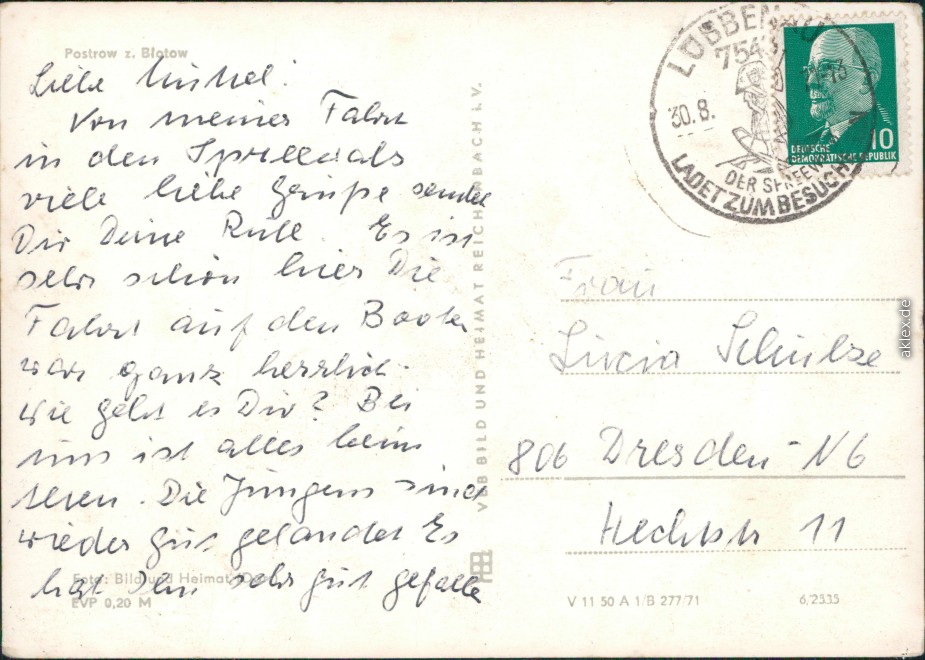 Postrow z. Błotow
Liebe Muskel!
Von meiner Fahrt
in den Spreewald
viele liebe Grüße sendet
Dir Deine Ruth. Es ist
sehr schön hier Die
Fahrt auf den Booten
war ganz herrlich.
Wie geht es Dir? Bei
uns ist alles beim
Die Jungens sind
wieder gut gelandet Es
hat sehr gut gefalle
Foto: Bild und Heimat
EVP 0,20 M
VEB BILD UND HEIMAT REICHENBACH I. V.
LÜBBENAU
754
30.8.
DER SPREEW
LADET ZUM BESUCH
10
DEUTSCHE
DEMOKRATISCHE REPUBLIK
Frau
Lucia Schulze
806 Dresden N6
Hechtstr 11
V 11 50 A 1/B 277/71
6/2535
aklex.de